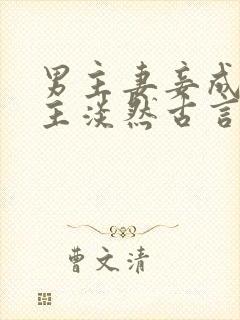 男主妻妾成
主淡然古言
曹文清